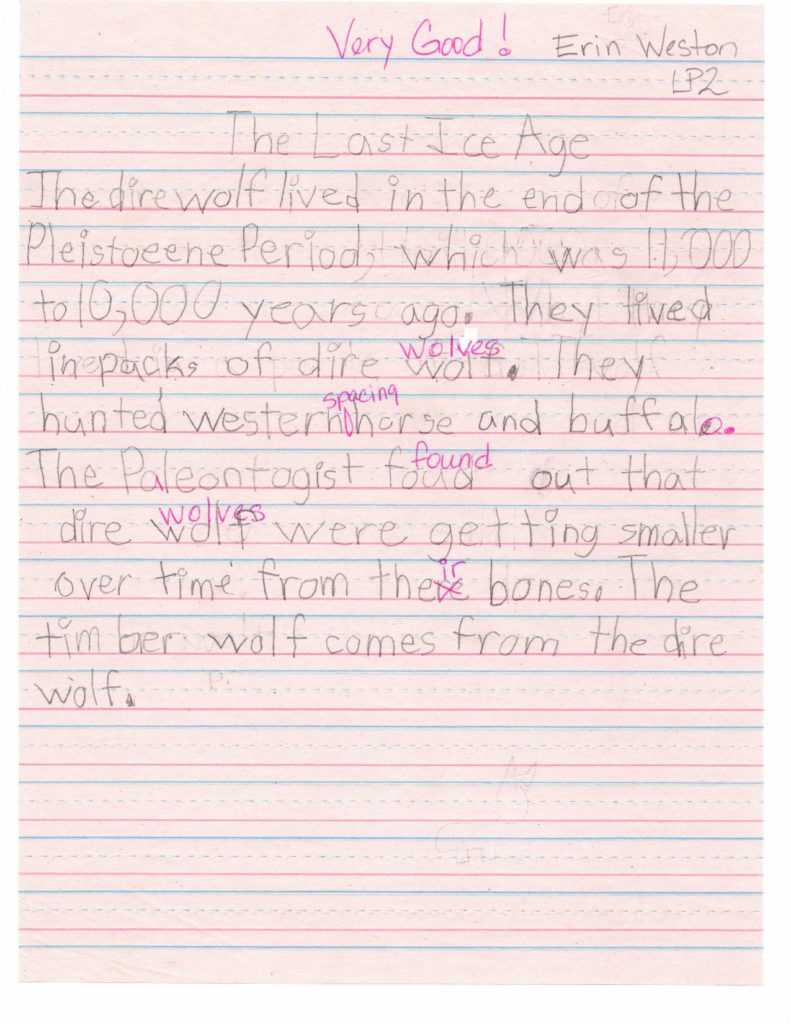 Very Good! Erin Weston
LP2
The Last Ice Age
The dire wolf lived in the end of the
Pleistocene Period, which was 11,000
to 10,000 years ago. They lived
wolves
in packs of dire wolf. They
spacing
hunted western horse and buffalo.
found
The Paleontogist foud out that
wolves
dire wolf were getting smaller
ir
over time from there bones. The
timber wolf comes from the dire
wolf.